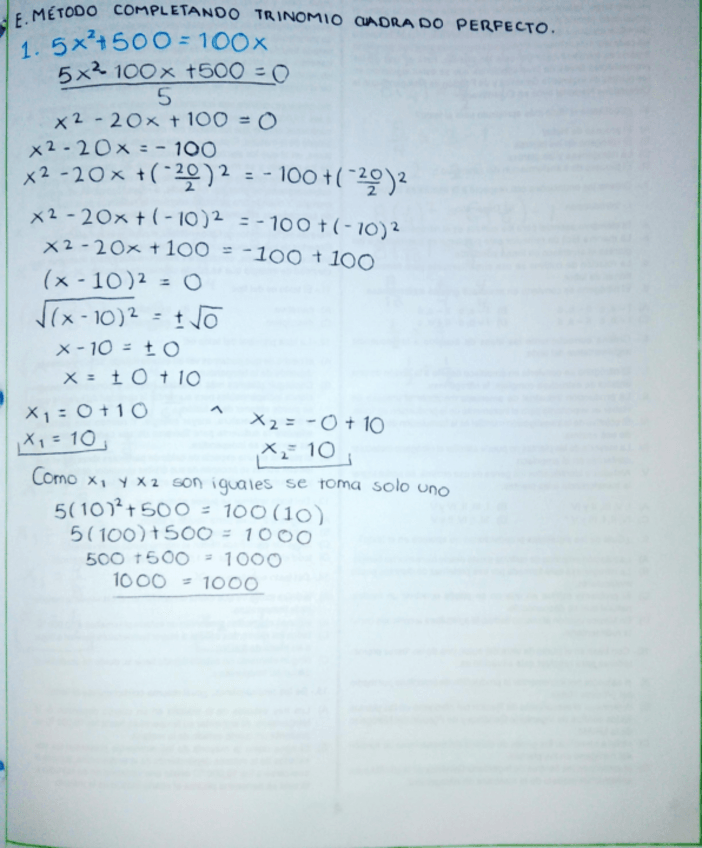 E. MÉTODO COMPLETANDO TRINOMIO CUADRADO PERFECTO.
1. 5x²+500 = 100x
5x²- 100x +500 = 0
5
x² - 20x + 100 = 0
x² - 20x = - 100
x² - 20x + (-20/2)² = - 100 + (-20/2)²
x² - 20x + (-10)² = -100 + (-10)²
x² - 20x + 100 = -100 + 100
(x - 10)² = 0
√(x - 10)² = ± √0
x - 10 = ± 0
x = ± 0 + 10
x₁ = 0 + 10 ^ x₂ = - 0 + 10
x₁ = 10 x₂ = 10
Como x₁ y x₂ son iguales se toma solo uno
5(10)² + 500 = 100(10)
5(100) + 500 = 1000
500 + 500 = 1000
1000 = 1000